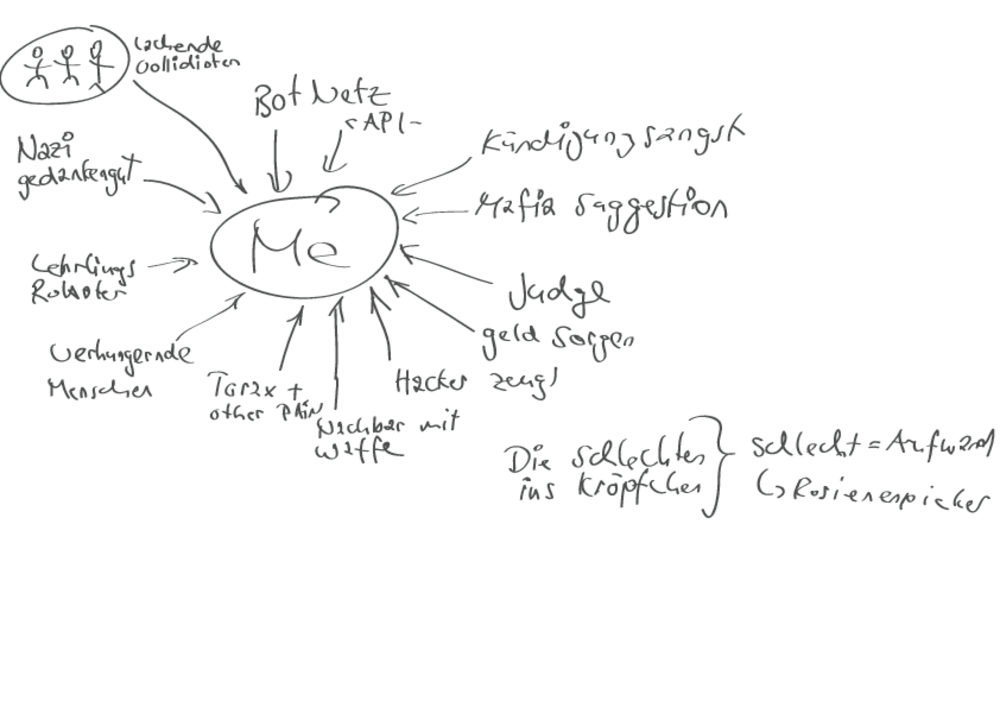 Lachende
Vollidioten
Bot Netz
API-
Kündigungsangst
Nazi
gedankengut
Mafia Suggestion
Me
Lehrlings
Roboter
Judge
geld sorgen
Verhungernde
Menschen
Hacker zeugl
other PAiN
Nachbar mit
Waffe
Die schlechten
ins Kröpfchen
schlecht = Aufwand
Rosienenpicker